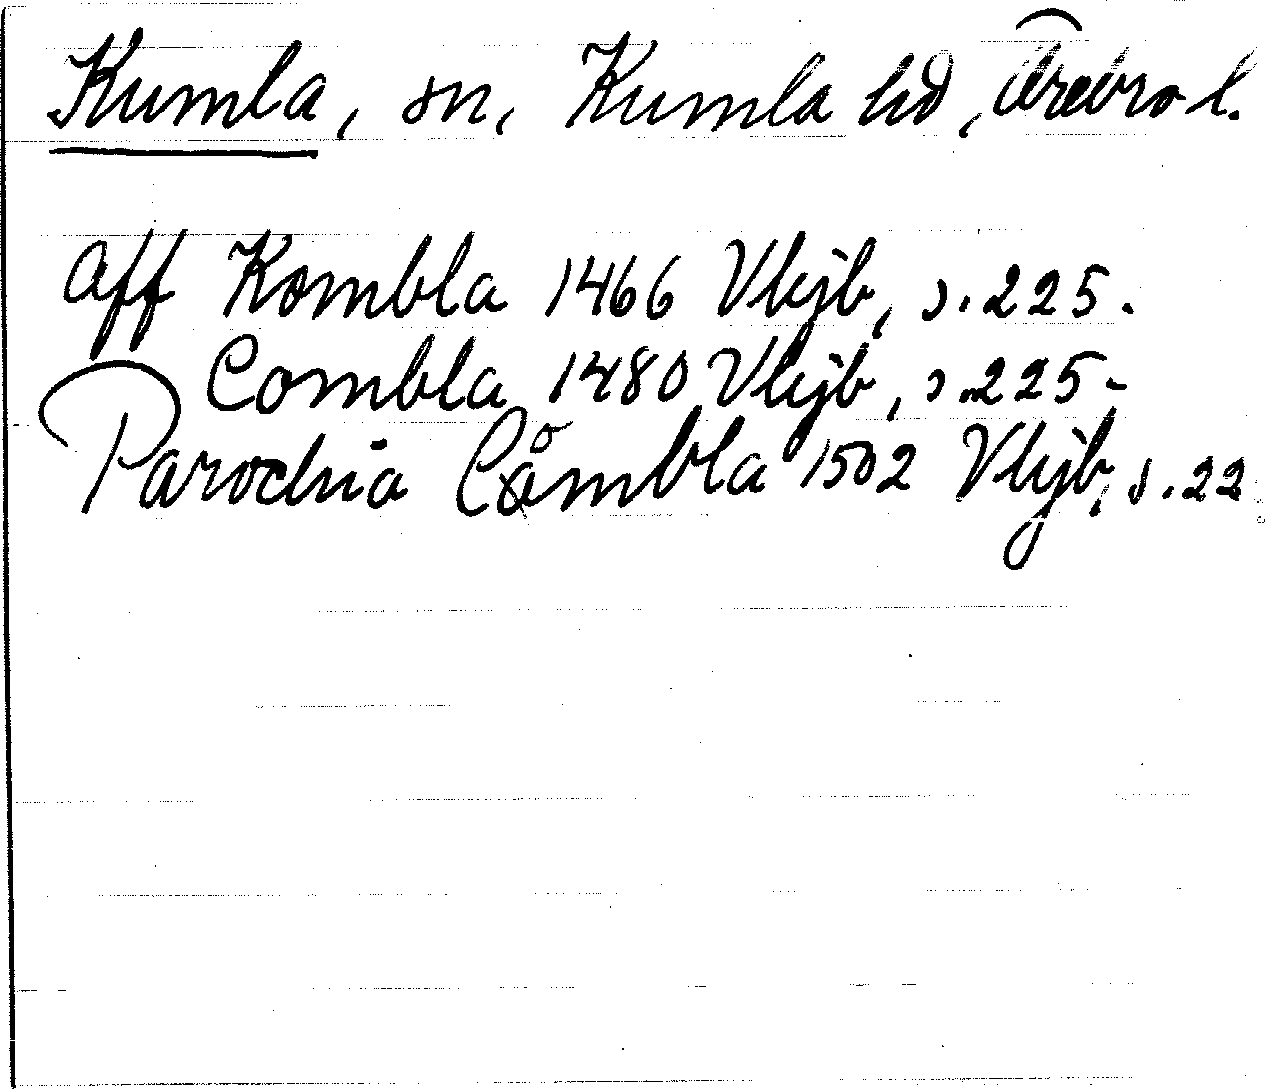 Kumla, sn, Kumla hd, Örebro l.
aff Kombla 1466 Vkjb, s. 225.
Combla 1480 Vkjb, s. 225-
Parochia Cåmbla 1502 Vkjb, s. 22